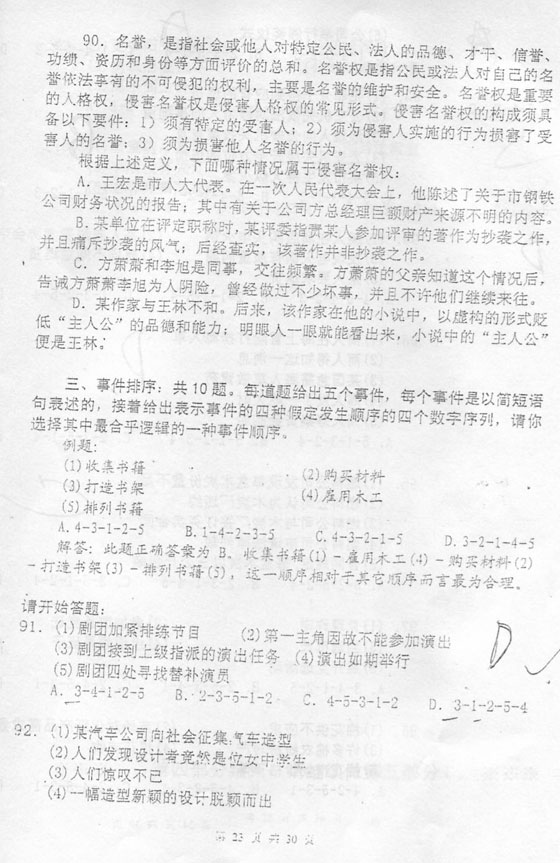 90．名誉，是指社会或他人对特定公民、法人的品德、才干、信誉、
功绩、资历和身份等方面评价的总和。名誉权是指公民或法人对自己的名
誉依法享有的不可侵犯的权利，主要是名誉的维护和安全。名誉权是重要
的人格权，侵害名誉权是侵害人格权的常见形式。侵害名誉权的构成须具
备以下要件：1）须有特定的受害人；2）须为侵害人实施的行为损害了受
害人的名誉；3）须为损害他人名誉的行为。
根据上述定义，下面哪种情况属于侵害名誉权：
A．王宏是市人大代表。在一次人民代表大会上，他陈述了关于市钢铁
公司财务状况的报告；其中有关于公司方总经理巨额财产来源不明的内容。
B．某单位在评定职称时，某评委指责某人参加评审的著作为抄袭之作，
并且痛斥抄袭的风气；后经查实，该著作并非抄袭之作。
C．方萧萧和李旭是同事，交往频繁。方萧萧的父亲知道这个情况后，
告诫方萧萧李旭为人阴险，曾经做过不少坏事，并且不许他们继续来往。
D．某作家与王林不和。后来，该作家在他的小说中，以虚构的形式贬
低“主人公”的品德和能力；明眼人一眼就能看出来，小说中的“主人公”
便是王林。
三、事件排序：共10题。每道题给出五个事件，每个事件是以简短语
句表述的，接着给出表示事件的四种假定发生顺序的四个数字序列，请你
选择其中最合乎逻辑的一种事件顺序。
例题：
(1)收集书籍 (2)购买材料
(3)打造书架 (4)雇用木工
(5)排列书籍
A.4-3-1-2-5 B.1-4-2-3-5 C.4-3-2-1-5 D.3-2-1-4-5
解答：此题正确答案为 B。收集书籍(1)-雇用木工(4)-购买材料(2)
-打造书架(3)-排列书籍(5)，这一顺序相对于其它顺序而言最为合理。
请开始答题：
91．(1)剧团加紧排练节目 (2)第一主角因故不能参加演出
(3)剧团接到上级指派的演出任务 (4)演出如期举行
(5)剧团四处寻找替补演员
A．3-4-1-2-5 B．2-3-5-1-2 C．4-5-3-1-2 D．3-1-2-5-4
D
92．(1)某汽车公司向社会征集汽车造型
(2)人们发现设计者竟然是位女中学生
(3)人们惊叹不已
(4)一幅造型新颖的设计脱颖而出
第 23 页 共 30 页